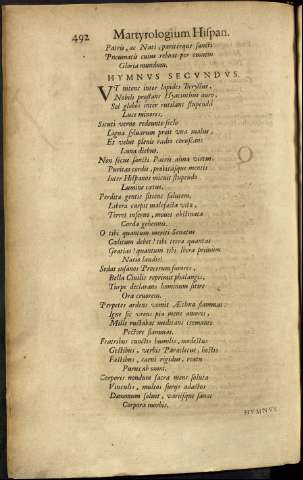 492 Martyrologium Hispan.
Patris, ac Nati, pariterque sancti
Pneumatis cuius reboat per omnem
Gloria mundum.
HYMNVS SECVNDVS.
VT nitens inter lapides Beryllus,
Nobilis præstans Hyacinthus auro,
Sol globos inter rutilans stupendo
Luce minores.
Sicuti verno redeunte sæclo
Ligna syluarum præit vna malus,
Et velut plenis radiis coruscans
Luna diebus.
Non secus sancti Patris alma virtus,
Puritas cordis, probitasque mentis
Inter Hispanos micuit stupendo
Lumine cœtus.
Perdita gentis sitiens salutem,
Libera carpit malefacta voce,
Terret inferno, mouet obstinata
Corda gehennæ.
O tibi quantum meriti Senatus
Cœlitum debet! tibi terra quantas
Gratias! quantum tibi litera pœnæ
Natio laudis!
Sedas insanos Procerum furores,
Bella Ciuilis reprimis phalangis,
Turpe declarans hominum sitire
Ora cruorem.
Perpetes ardens vomit Æthna flammas:
Igne sic vrens pia mens amoris,
Mille ructabat meditans cremante
Pectore flammas.
Fratribus cunctis humilis, modestus
Gestibus, verbis Paracletus, hostis
Fastibus, carni rigidus, reatu
Purus ab omni.
Corporis nondum sacra mens soluta
Vinculis, multos furijs adactos
Dæmonum soluit, varijsque sanat
Corpora morbis.
HYMNVS